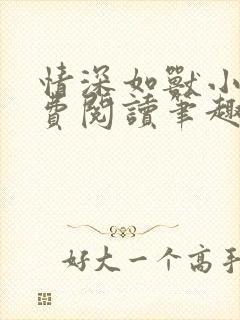 情深如獸小
費閱讀筆趣
好大一个高手